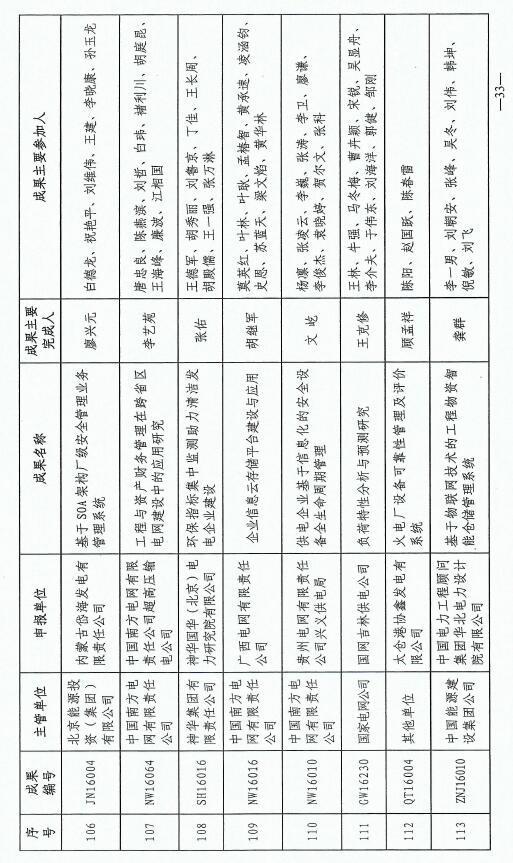 序号 成果编号 主管单位 申报单位 成果名称 成果主要完成人 成果主要参加人
106 JN16004 北京能源投资（集团）有限公司 内蒙古岱海发电有限责任公司 基于SOA架构厂级安全管理业务管理系统 廖兴元 白德龙、祝艳平、刘维伟、王建、李晓康、孙玉龙
107 NW16064 中国南方电网有限责任公司 中国南方电网有限责任公司超高压输电公司 工程与资产财务管理在跨省区电网建设中的应用研究 李艺苑 唐忠良、陈燕滨、刘哲、白玮、褚利川、胡庭昆、王海峰、廉波、江相国
108 SH16016 神华集团有限责任公司 神华国华（北京）电力研究院有限公司 环保指标集中监测助力清洁发电企业建设 张佑 王德军、胡秀丽、刘督京、丁佳、王长周、胡殿儒、王一强、张万琳
109 NW16016 中国南方电网有限责任公司 广西电网有限责任公司 企业信息云存储平台建设与应用 胡继军 莫英红、叶林、叶耿、孟椿智、黄承速、凌涵钧、史恩、苏蓝天、梁文焰、黄华林
110 NW16010 中国南方电网有限责任公司 贵州电网有限责任公司兴义供电局 供电企业基于信息化的安全设备全生命周期管理 文屹 杨凛、张凌云、李巍、张涛、李卫、廖谦、李俊杰、袁晓婷、贺尔文、张科
111 GW16230 国家电网公司 国网吉林供电公司 负荷特性分析与预测研究 王克修 王林、牛强、马冬梅、曹卉颖、宋锐、吴显舟、李介夫、于伟东、刘海洋、郭健、邹刚
112 QT16004 其他单位 太仓港协鑫发电有限公司 火电厂设备可靠性管理及评价系统 顾孟祥 陈阳、赵国跃、陈春雷
113 ZNJ16010 中国能源建设集团公司 中国电力工程顾问集团华北电力设计院有限公司 基于物联网技术的工程物资智能仓储管理系统 龚群 李一男、刘朝安、张峰、吴冬、刘伟、韩坤、倪敏、刘飞
—33—